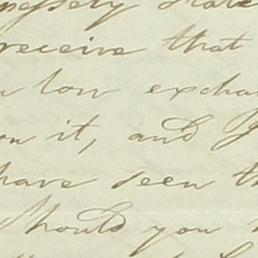 receive that
low excha
on it, and
have seen th
Should you